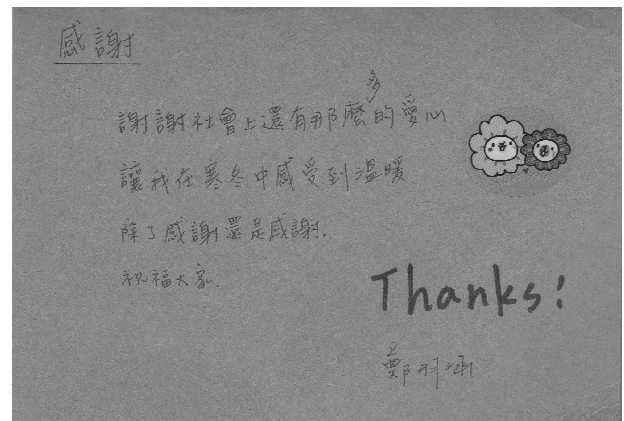 感謝
謝謝社會上還有那麼多的愛心
讓我在寒冬中感受到溫暖
除了感謝還是感謝.
祝福大家.
Thanks!
鄭羽涵